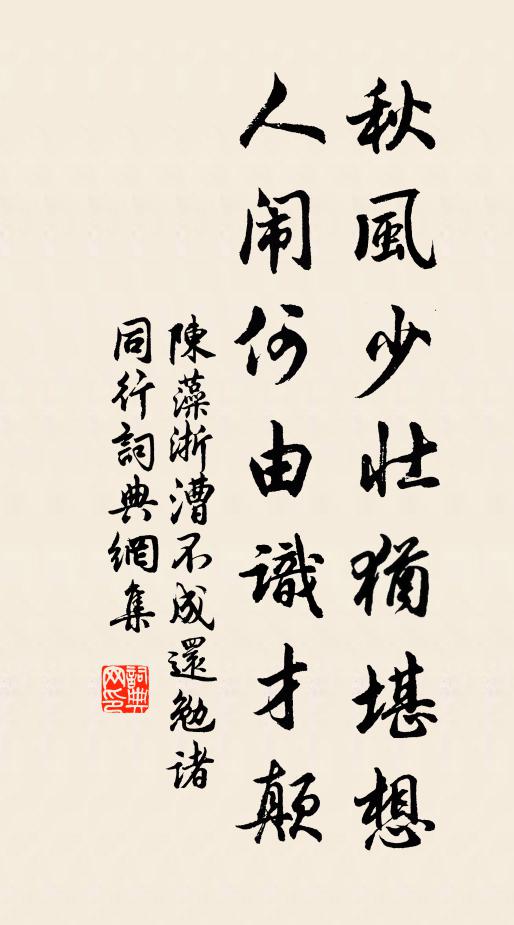 秋風少壯猶堪想
人闹何由識才颠
陳藻浙漕不成還勉諸
同行詞典網集
詞典
网印